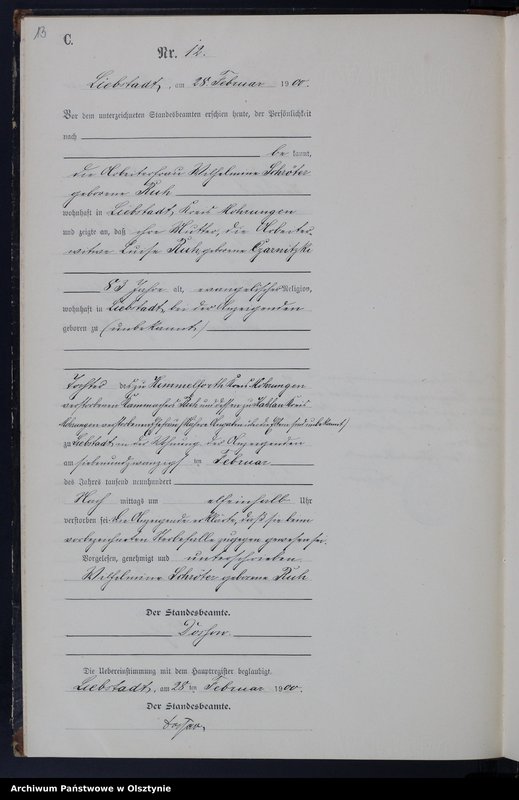 13
C.
Nr. 12.
Liebstadt, am 28. Februar 1900.
Vor dem unterzeichneten Standesbeamten erschien heute, der Persönlichkeit
nach
be kannt,
die Arbeiterfrau Wilhelmine Schröter
geborene Kuh
wohnhaft in Liebstadt, Kreis Mohrungen
und zeigte an, daß ihre Mutter, die Arbeiter-
witwe Luise Kuh geborene Czarnitzki
83 Jahre alt, evangelischer Religion,
wohnhaft in Liebstadt, bei der Anzeigenden
geboren zu (unbekannt)
Tochter des zu Himmelforth Kreis Mohrungen
verstorbenen Kuh und dessen zu Kreis
Mohrungen verstorbenen Ehefrau (Nähere Angaben über die Eltern sind unbekannt)
zu Liebstadt, in der Wohnung der Anzeigenden
am siebenundzwanzigsten Februar
des Jahres tausend neunhundert
Nach mittags um elfeinhalb Uhr
verstorben sei. Die Anzeigende erklärte, daß sie beim
vorbezeichneten Sterbefalle zugegen gewesen sei.
Vorgelesen, genehmigt und unterschrieben
Wilhelmine Schröter geborene Kuh
Der Standesbeamte.
Die Uebereinstimmung mit dem Hauptregister beglaubigt.
Liebstadt, am 28 ten Februar 1900.
Der Standesbeamte.
Archiwum Państwowe w Olsztynie